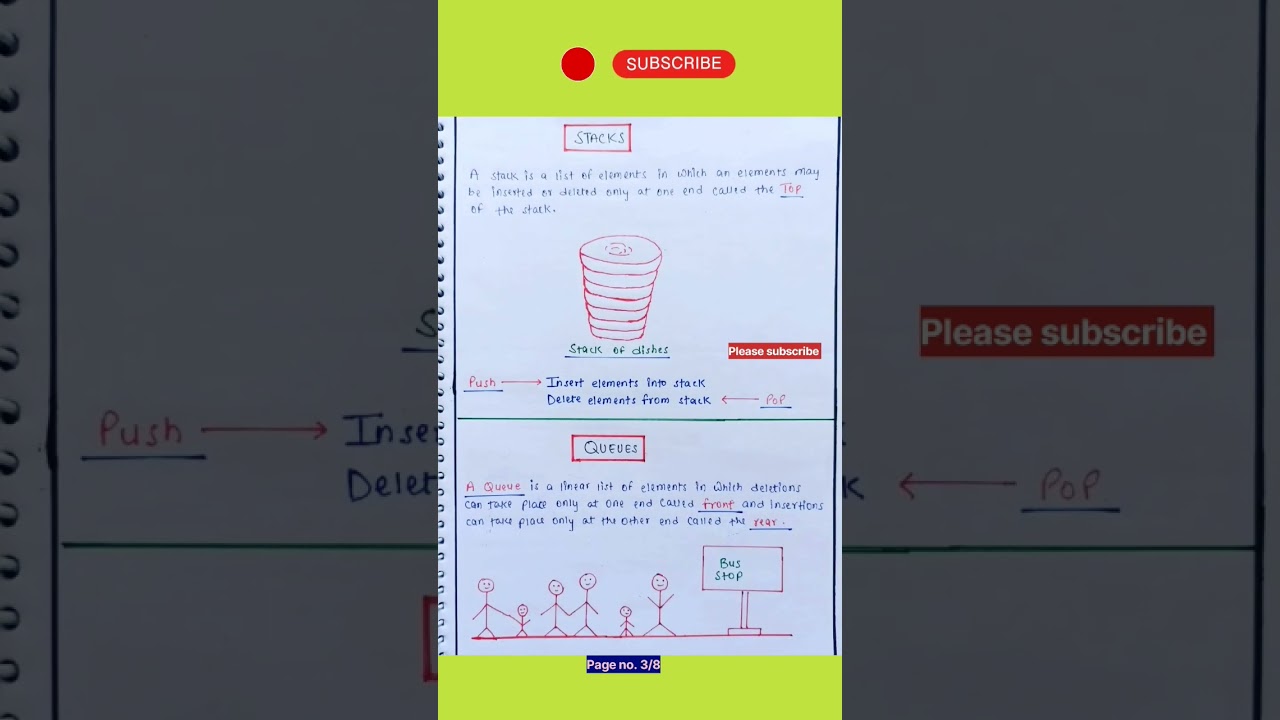 SUBSCRIBE
STACKS
A stack is a list of elements in which an elements may
be inserted or deleted only at one end called the TOP
of the stack.
Stack of dishes
Please subscribe
Push → Insert elements into stack
Delete elements from stack ← POP
QUEUES
A Queue is a linear list of elements in which deletions
can take place only at one end called front and insertions
can take place only at the other end called the rear.
BUS
STOP
Page no. 3/8
S
Push → Inse
Delet
Please subscribe
k
k ← POP